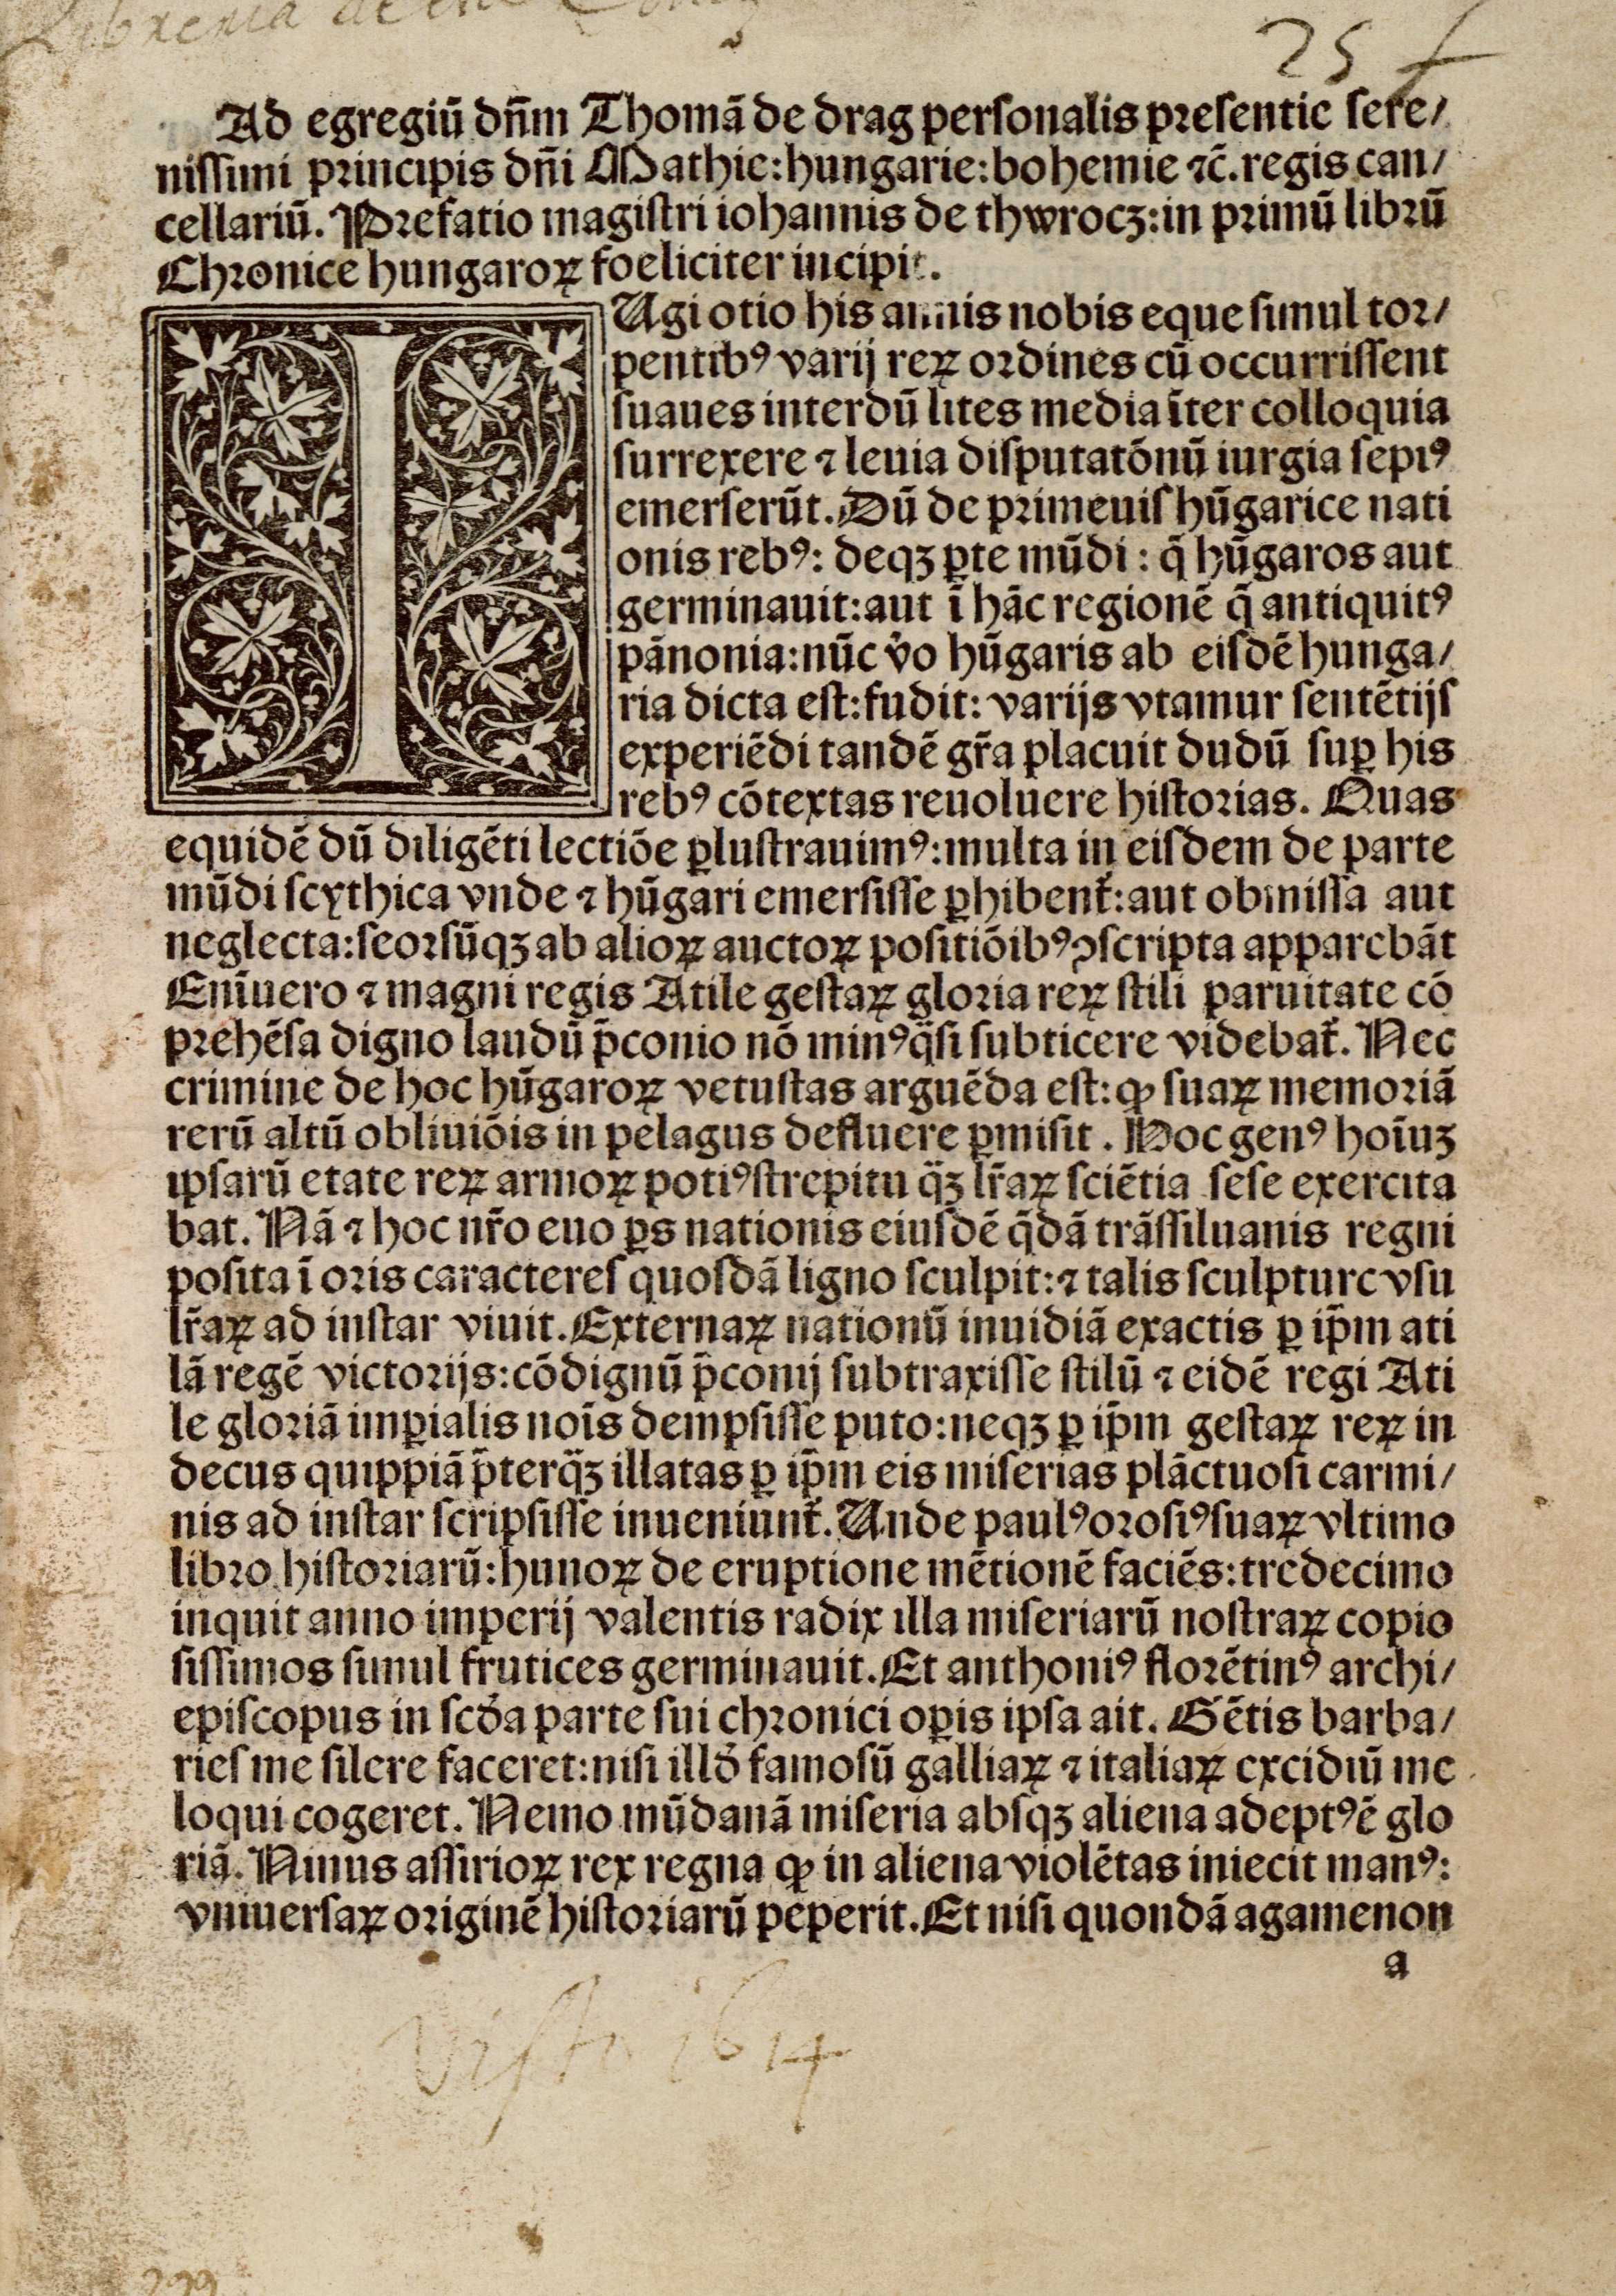 25 f
Ad egregiū dn̄m Thomā de drag personalis presentie sere/
nissimi principis dn̄i Mathie:hungarie:bohemie ⁊c̄.regis can/
cellariū. Prefatio magistri iohannis de thwrocz:in primū librū
Chronice hungaroꝝ foeliciter incipit.
IUgi otio his annis nobis eque simul tor/
pentibꝰ varij reꝝ ordines cū occurrissent
suaues interdū lites media īter colloquia
surrexere ⁊ leuia disputatōnū iurgia sepiꝰ
emerserūt. Dū de primeuis hūgarice nati
onis rebꝰ: deqꝫ ꝑte mūdi: q̄ hūgaros aut
germinauit:aut ī hāc regionē q̄ antiquitꝰ
pānonia:nūc v̓o hūgaris ab eisdē hunga/
ria dicta est:fudit: varijs vtamur sentētijs
experiēdi tandē gr̄a placuit dudū suꝑ his
rebꝰ cōtextas reuoluere historias. Quas
equidē dū diligēti lectiōe ꝑlustrauimꝰ:multa in eisdem de parte
mūdi scythica vnde ⁊ hūgari emersisse ꝑhibent᷑:aut obmissa aut
neglecta:seorsūqꝫ ab alioꝝ auctoꝝ positiōibꝰ ꝯscripta apparebāt
Enīuero ⁊ magni regis Atile gestaꝝ gloria reꝝ stili paruitate cō
prehēsa digno laudū p̄conio nō minꝰ qͣsi subticere videbat᷑. Nec
crimine de hoc hūgaroꝝ vetustas arguēda est: ꝙ suaꝝ memoriā
rerū altū obliuiōis in pelagus defluere ꝑmisit. Hoc genꝰ hoīuꝫ
ipsarū etate reꝝ armoꝝ potiꝰ strepitu qͣꝫ lr̄aꝝ sciētia sese exercita
bat. Nā ⁊ hoc nr̄o euo ꝑs nationis eiusdē q̄dā trāssiluanis regni
posita ī oris caracteres quosdā ligno sculpit:⁊ talis sculpture vsu
lr̄aꝝ ad instar viuit. Externaꝝ nationū inuidiā exactis ꝑ ip̄m ati
lā regē victorijs:cōdignū p̄conij subtraxisse stilū ⁊ eidē regi Ati
le gloriā imꝑialis noīs dempsisse puto:neqꝫ ꝑ ip̄m gestaꝝ reꝝ in
decus quippiā p̄terqͣꝫ illatas ꝑ ip̄m eis miserias plāctuosi carmi/
nis ad instar scripsisse inueniunt᷑. Unde paulꝰ orosiꝰ suaꝝ vltimo
libro historiarū:hunoꝝ de eruptione mētionē faciēs:tredecimo
inquit anno imperij valentis radix illa miseriarū nostraꝝ copio
sissimos simul frutices germinauit. Et anthoniꝰ florētinꝰ archi/
episcopus in scd̓a parte sui chronici oꝑis ipsa ait. Gētis barba/
ries me silere faceret:nisi illd̓ famosū galliaꝝ ⁊ italiaꝝ excidiū me
loqui cogeret. Nemo mūdanā miseria absqꝫ aliena adeptꝰ ē glo
riā. Ninus assirioꝝ rex regna ꝙ in aliena violētas iniecit manꝰ:
vniuersaꝝ originē historiarū peperit. Et nisi quondā agamenon
a
Visto 1614